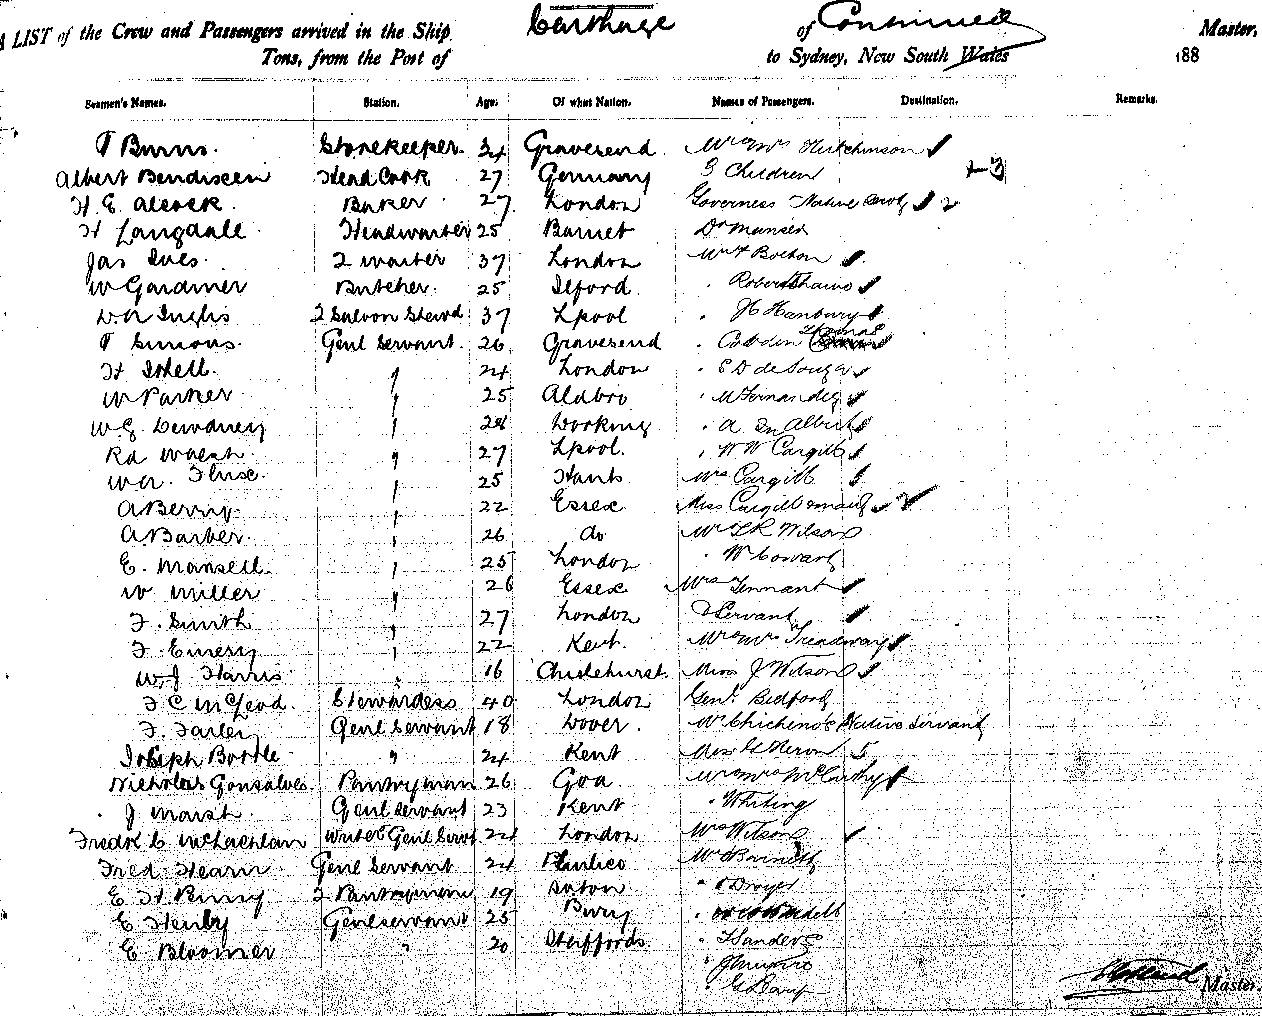 A LIST of the Crew and Passengers arrived in the Ship Carthage of Continued Master,
Tons, from the Port of to Sydney, New South Wales 188
Seamen's Names. Station. Age. Of what Nation. Names of Passengers. Destination. Remarks.
T Burns. Storekeeper. 34 Gravesend Mr & Mrs Hutchinson
Albert Bendixeen Head Cook 27 Germany 3 Children
H E Alcock. Baker 27 London Governess Native 2
H Langdale Headwaiter 25 Barnet Dr Mansen
Jas Ives. 2 waiter 37 London Mr Bolton
W Gardiner Butcher. 25 Ilford. Robert
W.A Inglis 2 Saloon Stewd 37 Lpool H Hanbury
T Simons. Genl Servant. 26 Gravesend Cobden Thomas
H Idell. " 24 London E D de Souza
W Parker " 25 Aldbro M Fernandez
W.G. Dewdney " 28 Working A
Rd Walsh " 27 Lpool. W W Cargill
W.A. " 25 Hants Mrs Cargill
A Berry. " 22 Essex Miss Cargill & maid 2
A Barber. " 26 do Mr L R Wilson
E. Mansell. " 25 London W Cowart
W Miller " 26 Essex Mrs Tennant
F. Smith " 27 London & Servant
F. Emery " 22 Kent. Mr & Mrs Treadway
W.J Harris " 16 Chislehurst. Miss J Wilson
F C McLeod. Stewardess 40 London Genl. Bedford
F. Farley Genl Servant 18 Dover. Mr Native Servant
Joseph Bottle " 24 Kent 5
Nicholas Gonsalves Pantryman 26 Goa Mr & Mrs McCarthy
J Marsh Genl Servant 23 Kent " Whiting
Fredk C McLachlan Writer Genl Servt 24 London Mrs Wilson
Fred. Hearn Genl Servant 24 Pimlico Mr Barnett
E H Binny 2 Pantryman 19 Sutton " Droyer
E Henby Genl servant 25 Bury
E Bloomer " 20 Staffords " Sanders
" G
Master.